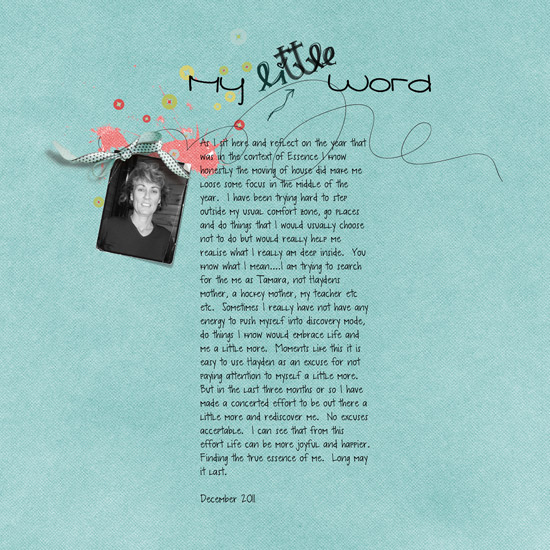 My little Word
As I sit here and reflect on the year that
was in the context of Essence I know
honestly the moving of house did make me
loose some focus in the middle of the
year. I have been trying hard to step
outside my usual comfort zone, go places
and do things that I would usually choose
not to do but would really help me
realise what I really am deep inside. You
know what I mean....I am trying to search
for the me as Tamara, not Haydens
mother, a hockey mother, my teacher etc
etc. Sometimes I really have not have any
energy to push myself into discovery mode,
do things I know would embrace life and
me a little more. Moments like this it is
easy to use Hayden as an excuse for not
paying attention to myself a little more.
But in the last three months or so I have
made a concerted effort to be out there a
little more and rediscover me. No excuses
acceptable. I can see that from this
effort life can be more joyful and happier.
Finding the true essence of me. Long may
it last.
December 2011